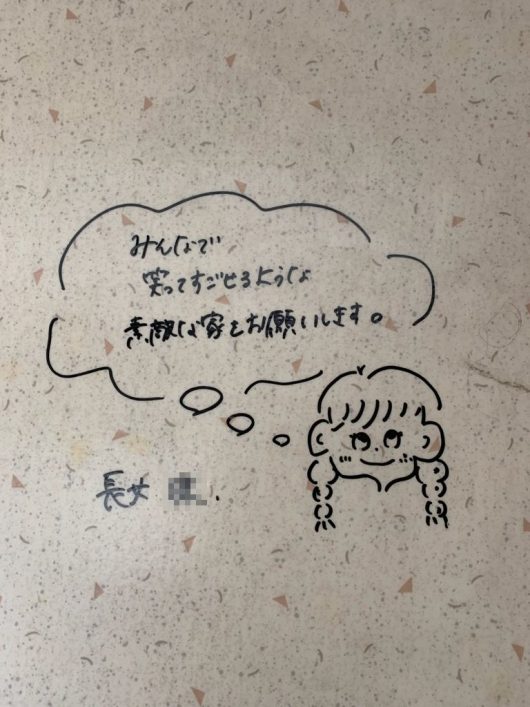 みんなで
笑ってすごせるような
素敵な家をお願いします。
長女